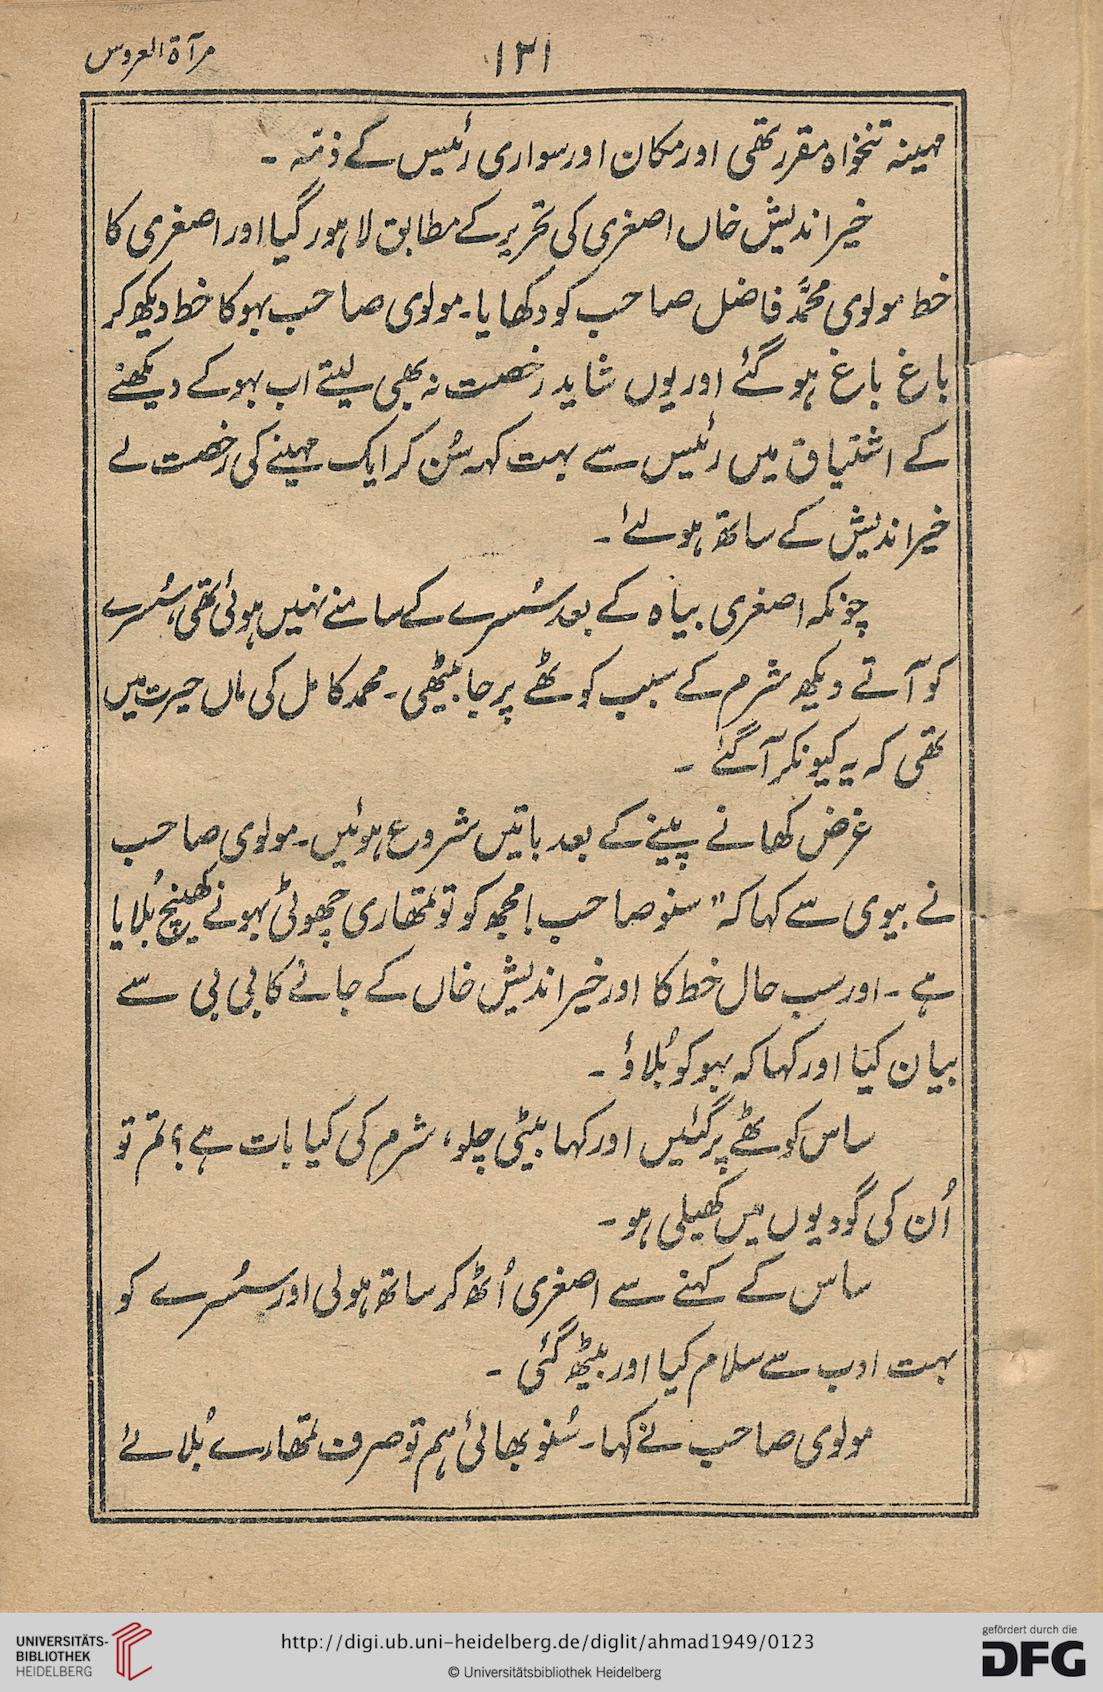 مرآۃ العروس
۱۲۱
مہینہ تنخواہ مقرر تھی اور مکان اور سواری رئیس کے ذمّہ ۔
خیر اندیش خاں اصغری کی تحریر کے مطابق لاہور گیا اور اصغری کا
خط مولوی محمّد فاضل صاحب کو دکھایا۔ مولوی صاحب بہو کا خط دیکھ کر
باغ باغ ہو گئے اور یوں شاید رخصت نہ بھی لیتے اب بہو کے دیکھنے
کے اشتیاق میں رئیس سے بہت کہہ سُن کر ایک مہینے کی رخصت لے
خیر اندیش کے ساتھ ہولئے ۔
چونکہ اصغری بیاہ کے بعد سُسرے کے سامنے نہیں ہوئی تھی، سُسرے
کو آتے دیکھ شرم کے سبب کوٹھے پر جا بیٹھی ۔ محمد کامل کی ماں حیرت میں
تھی کہ یہ کیونکر آ گئے ۔
غرض کھانے پینے کے بعد باتیں شروع ہوئیں۔ مولوی صاحب
نے بیوی سے کہا کہ "سنو صاحب! مجھ کو تو تمھاری چھوٹی بہو نے کھینچ بُلایا
ہے ۔ اور سب حال خط کا اور خیر اندیش خاں کے جانے کا بی بی سے
بیان کیا اور کہا کہ بہو کو بُلاؤ ۔
ساس کوٹھے پر گئیں اور کہا بیٹی چلو، شرم کی کیا بات ہے؟ تم تو
اُن کی گودیوں میں کھیلی ہو ۔
ساس کے کہنے سے اصغری اُٹھ کر ساتھ ہولی اور سُسرے کو
بہت ادب سے سلام کیا اور بیٹھ گئی ۔
مولوی صاحب نے کہا۔ سُنو بھائی ہم تو صرف تمھارے بُلائے
UNIVERSITÄTS-
BIBLIOTHEK
HEIDELBERG
http://digi.ub.uni-heidelberg.de/diglit/ahmad1949/0123
© Universitätsbibliothek Heidelberg
gefördert durch die
DFG